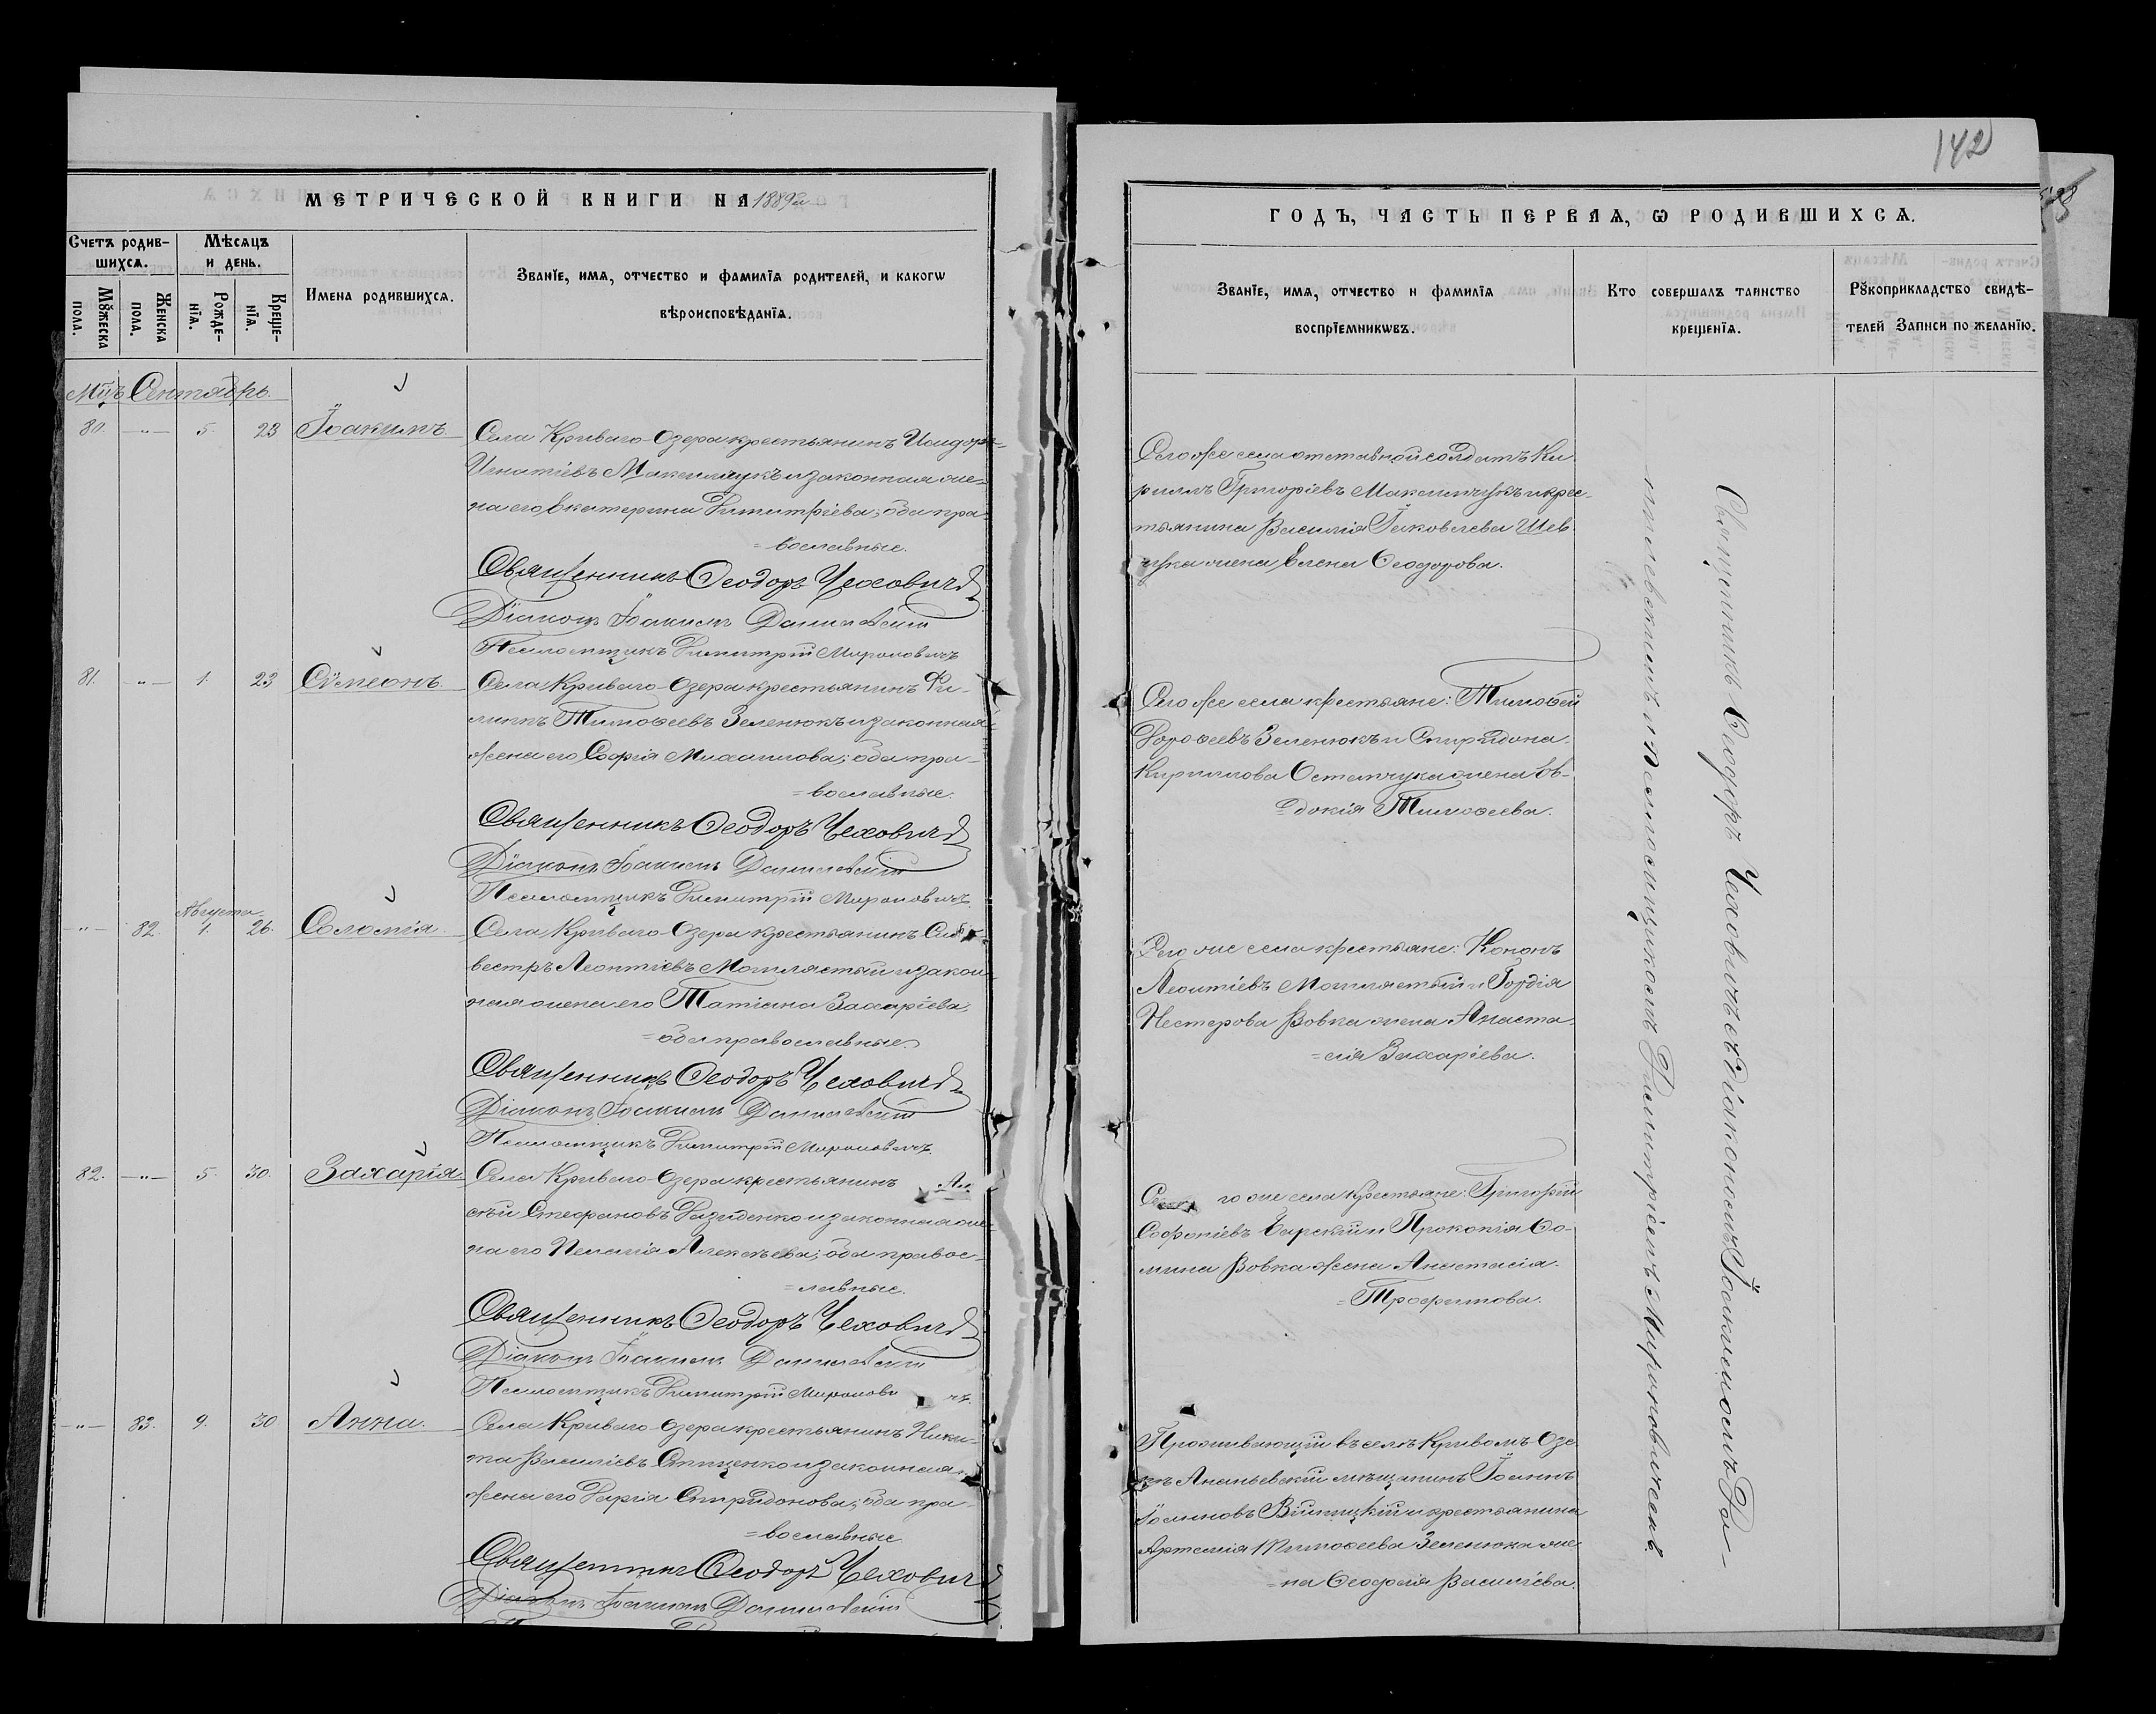 142
МЕТРИЧЕСКОЙ КНИГИ НА 1889й
Счетъ родив-
шихся.
Мѣсяцъ
и день.
Мꙋжеска
пола.
Женска
пола.
Рожде-
нїя.
Креще-
нїя.
Имена родившихся.
Званїе, имя, отчество и фамилїя родителей, и какогѡ
вѣроисповѣданїя.
Мцъ Сентябрь.
80. —"— 5. 23 Іоакимъ
Села Криваго-Озера крестьянинъ Исидоръ
Игнатіевъ Максимчукъ и законная же-
на его Екатерина Димитріева; оба пра-
=вославные.
Священникъ Ѳеодоръ Чеховичъ
Діаконъ Іоакимъ Данилевскій
Псаломщикъ Димитрій Мироновичъ
81. —"— 1. 23 Сѵмеонъ
Села Криваго-Озера крестьянинъ Фи-
липпъ Тимоѳеевъ Зеленюкъ и законная
жена его Софія Михаилова; оба пра-
=вославные.
Священникъ Ѳеодоръ Чеховичъ
Діаконъ Іоакимъ Данилевскій
Псаломщикъ Димитрій Мироновичъ
—"— 82. Августа 1. 26. Соломія
Села Криваго-Озера крестьянинъ Силь-
вестръ Леонтіевъ Могилястый и закон-
ная жена его Татіана Захаріева,
=оба православные.
Священникъ Ѳеодоръ Чеховичъ
Діаконъ Іоакимъ Данилевскій
Псаломщикъ Димитрій Мироновичъ
82. —"— 5. 30. Захарія
Села Криваго-Озера крестьянинъ Ал
сѣй Стефановъ и законная же-
на его Пелагія Алексѣева; оба правос-
=лавные.
Священникъ Ѳеодоръ Чеховичъ
Діаконъ Іоакимъ Данилевскій
Псаломщикъ Димитрій Миронови чъ
—"— 83. 9. 30 Анна.
Села Криваго-Озера крестьянинъ Ники-
та Василіевъ и законная
жена его Дарія Спиридонова; оба пра-
=вославные
Священникъ Ѳеодоръ Чеховичъ
Діаконъ Іоакимъ Данилевскій
ГОДЪ, ЧАСТЬ ПЕРВАЯ, Ѡ РОДИВШИХСЯ.
Званїе, имя, отчество и фамилїя
воспрїемникѡвъ.
Кто совершалъ таинство
крещенїя.
Рꙋкоприкладство свидѣ-
телей Записи по желанїю.
Того же села отставной солдатъ Ки-
риллъ Григоріевъ Максимчукъ и крес-
тьянина Василія Іаковлева Шев-
чука жена Елена Ѳеодорова.
Того же села крестьяне: Тимоѳей
Дороѳеевъ Зеленюкъ и Спиридона
Кириллова Остапчука жена Ев-
=докія Тимоѳеева.
Того же села крестьяне: Кононъ
Леонтіевъ Могилястый и Гордія
Нестерова Вовка жена Анаста-
=сія Захаріева.
го же села крестьяне: Григорій
Софоніевъ и Прокопія Ѳо-
мина Вовка жена Анастасія
=Трофимова.
Проживающій въ селѣ Кривомъ-Озе-
рѣ Ананьевскій мѣщанинъ Іоаннъ
Іоанновъ и крестьянина
Артемія Тимоѳеева Зеленюка же-
=на Ѳеодосія Василіева.
Священникъ Ѳеодоръ Чеховичъ съ Діакономъ Іоакимомъ Да-
нилевскимъ и Псаломщикомъ Димитріемъ Мироновичемъ.